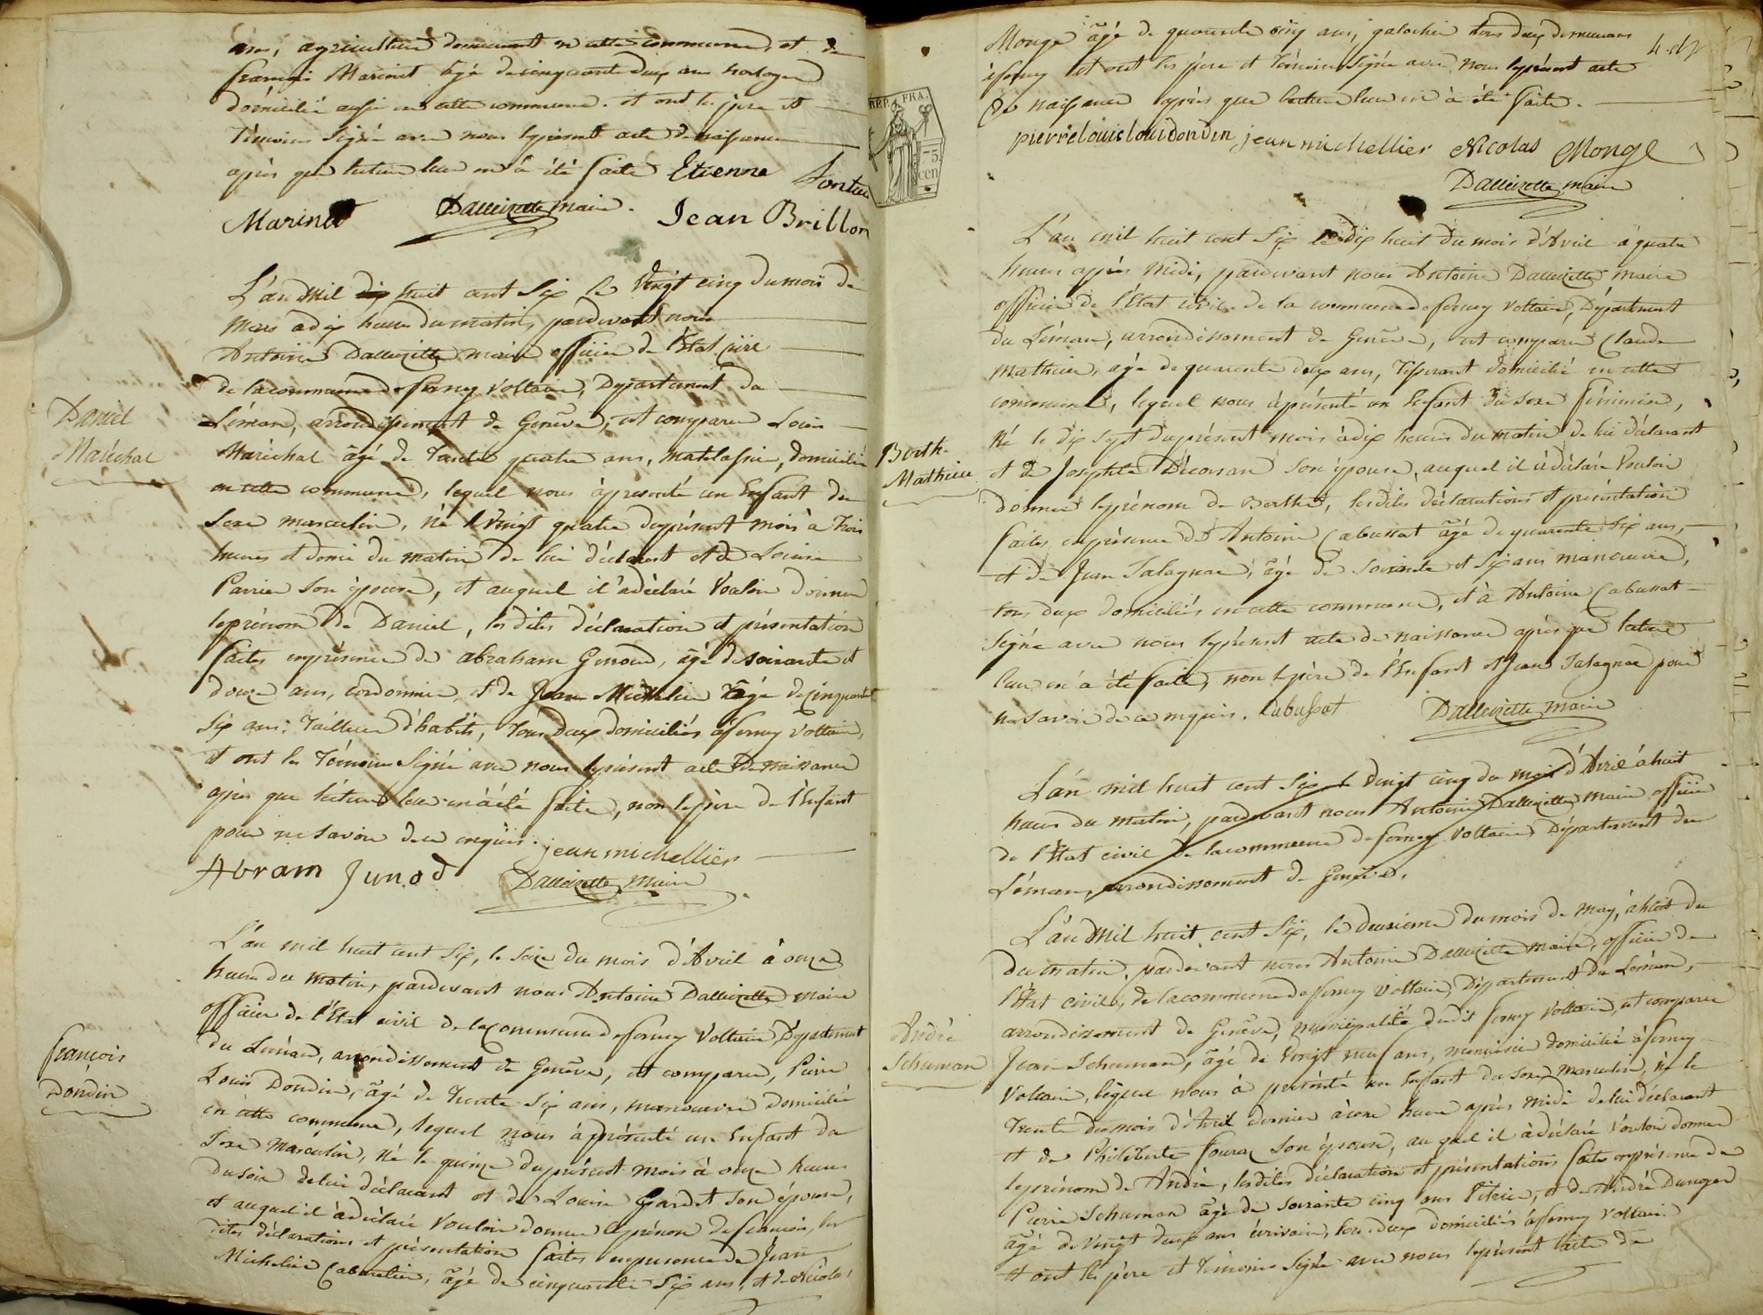 ans, agriculteur demeurant en cette commune, et de
françois Marinet âgé de cinquante deux ans horloger
domicilié aussi en cette commune. et ont les père et
témoins signé avec nous le présent acte de naissance
après que lecture leur en a été faite Etienne Fontai
Marinet Dalloizette maire. Jean Brillon
L'an Mil dix huit cent Six le Vingt cinq du mois de
Mars à dix heures du matin, pardevant nous
Antoine Dalloizette maire officier de l'Etat civil
de la commune de ferney Voltaire, Département du
Léman, arrondissement de Genève, est comparu Louis
Daniel
Maréchal
Maréchal âgé de trente quatre ans, matelassier, domicilié
en cette commune, lequel nous à présenté un Enfant du
Sexe masculin, né le Vingt quatre du présent mois à trois
heures et demi du matin de lui déclarant et de Louise
Perrier son épouse, et auquel il a déclaré vouloir donner
le prénom de Daniel, les dites déclaration et présentation
faites en présence de abraham Genoud, âgé de soixante et
douze ans, cordonnier, et de Jean Michelier âgé de cinquante
Six ans, Tailleur d'habits, tous deux domiciliés à ferney Voltaire,
et ont les Témoins Signé avec nous le présent acte de naissance
après que lecture leur en à été faite, non le père de l'Enfant
pour ne savoir de ce enquis. jean michellier
Abram Junod Dalloizette maire
L'an mil huit cent Six, le seize du mois d'Avril à onze
heures du matin, pardevant nous Antoine Dalloizette maire
officier de l'Etat civil de la commune de ferney Voltaire Département
du Léman, arrondissement de Genève, est comparu, Pierre
françois
Dondin
Louis Dondin, âgé de Trente Six ans, manoeuvre domicilié
en cette commune, lequel nous à présenté un Enfant du
Sexe masculin, né le quinze du présent mois à onze heures
du soir de lui déclarant et de Louise Gardet son épouse,
et auquel il à déclaré vouloir donner le prénom de françois, les
dites déclarations et présentation faites en présence de Jean
Michelier Cabaretier, âgé de cinquante Six ans, et de Nicolas
Monge âgé de quarante cinq ans, galochier tous deux demeurans
à ferney et ont les père et témoins signé avec nous le présent acte
de naissance après que lecture leur en à été faite.
pierre louis louis dondin jean michellier Nicolas Monge
Dalloizette maire
REP. FRA.
75
cen
L'an mil huit cent Six le dix huit du mois d'Avril à quatre
heures après midi, pardevant nous Antoine Dalloizette maire
officier de l'Etat civil de la commune de ferney Voltaire, Département
du Léman, arrondissement de Genève, est comparu Claude
Mathieu, âgé de quarante deux ans, Tisserant domicilié en cette
commune, lequel nous à présenté un Enfant du sexe féminin,
né le dix sept du présent mois à dix heures du matin de lui déclarant
Berthe
Mathieu
et de Josephte Décorsan son épouse, auquel il à déclaré vouloir
donner le prénom de Berthe, les dites déclarations et présentation
faites en présence de Antoine Cabussat âgé de quarante Six ans,
et de Jean Salagnac, âgé de Soixante et Six ans manoeuvre,
tous deux domiciliés en cette commune, et à Antoine Cabussat
signé avec nous le présent acte de naissance après que lecture
leur en à été faite, non le père de l'Enfant et Jean Salagnac pour
ne savoir de ce enquis. Cabussat Dalloizette maire
L'an mil huit cent Six le vingt cinq du mois d'Avril à huit
heures du matin, pardevant nous Antoine Dalloizette maire officier
de l'Etat civil de la commune de ferney Voltaire Département du
Léman, arrondissement de Genève,
L'an Mil huit cent Six, le deuxième du mois de may, à huit du
du matin, pardevant nous Antoine Dalloizette maire, officier de
l'Etat civil, de la commune de ferney Voltaire, Département du Léman,
arrondissement de Genève, municipalité du dit ferney Voltaire, est comparu
André
Schuman
Jean Schuman, âgé de vingt neuf ans, menuisier domicilié à ferney
Voltaire, lequel nous à présenté un Enfant du Sexe masculin, né le
Trente du mois d'Avril dernier à une heure après midi de lui déclarant
et de Philiberte fouraz son épouse, au quel il à déclaré vouloir donner
le prénom de André, les dites déclaration et présentations faites en présence de
Pierre Schuman âgé de soixante cinq ans, et de André
âgé de vingt deux ans écrivain, tous deux domiciliés à ferney Voltaire
et ont les père et témoins signé avec nous le présent acte de